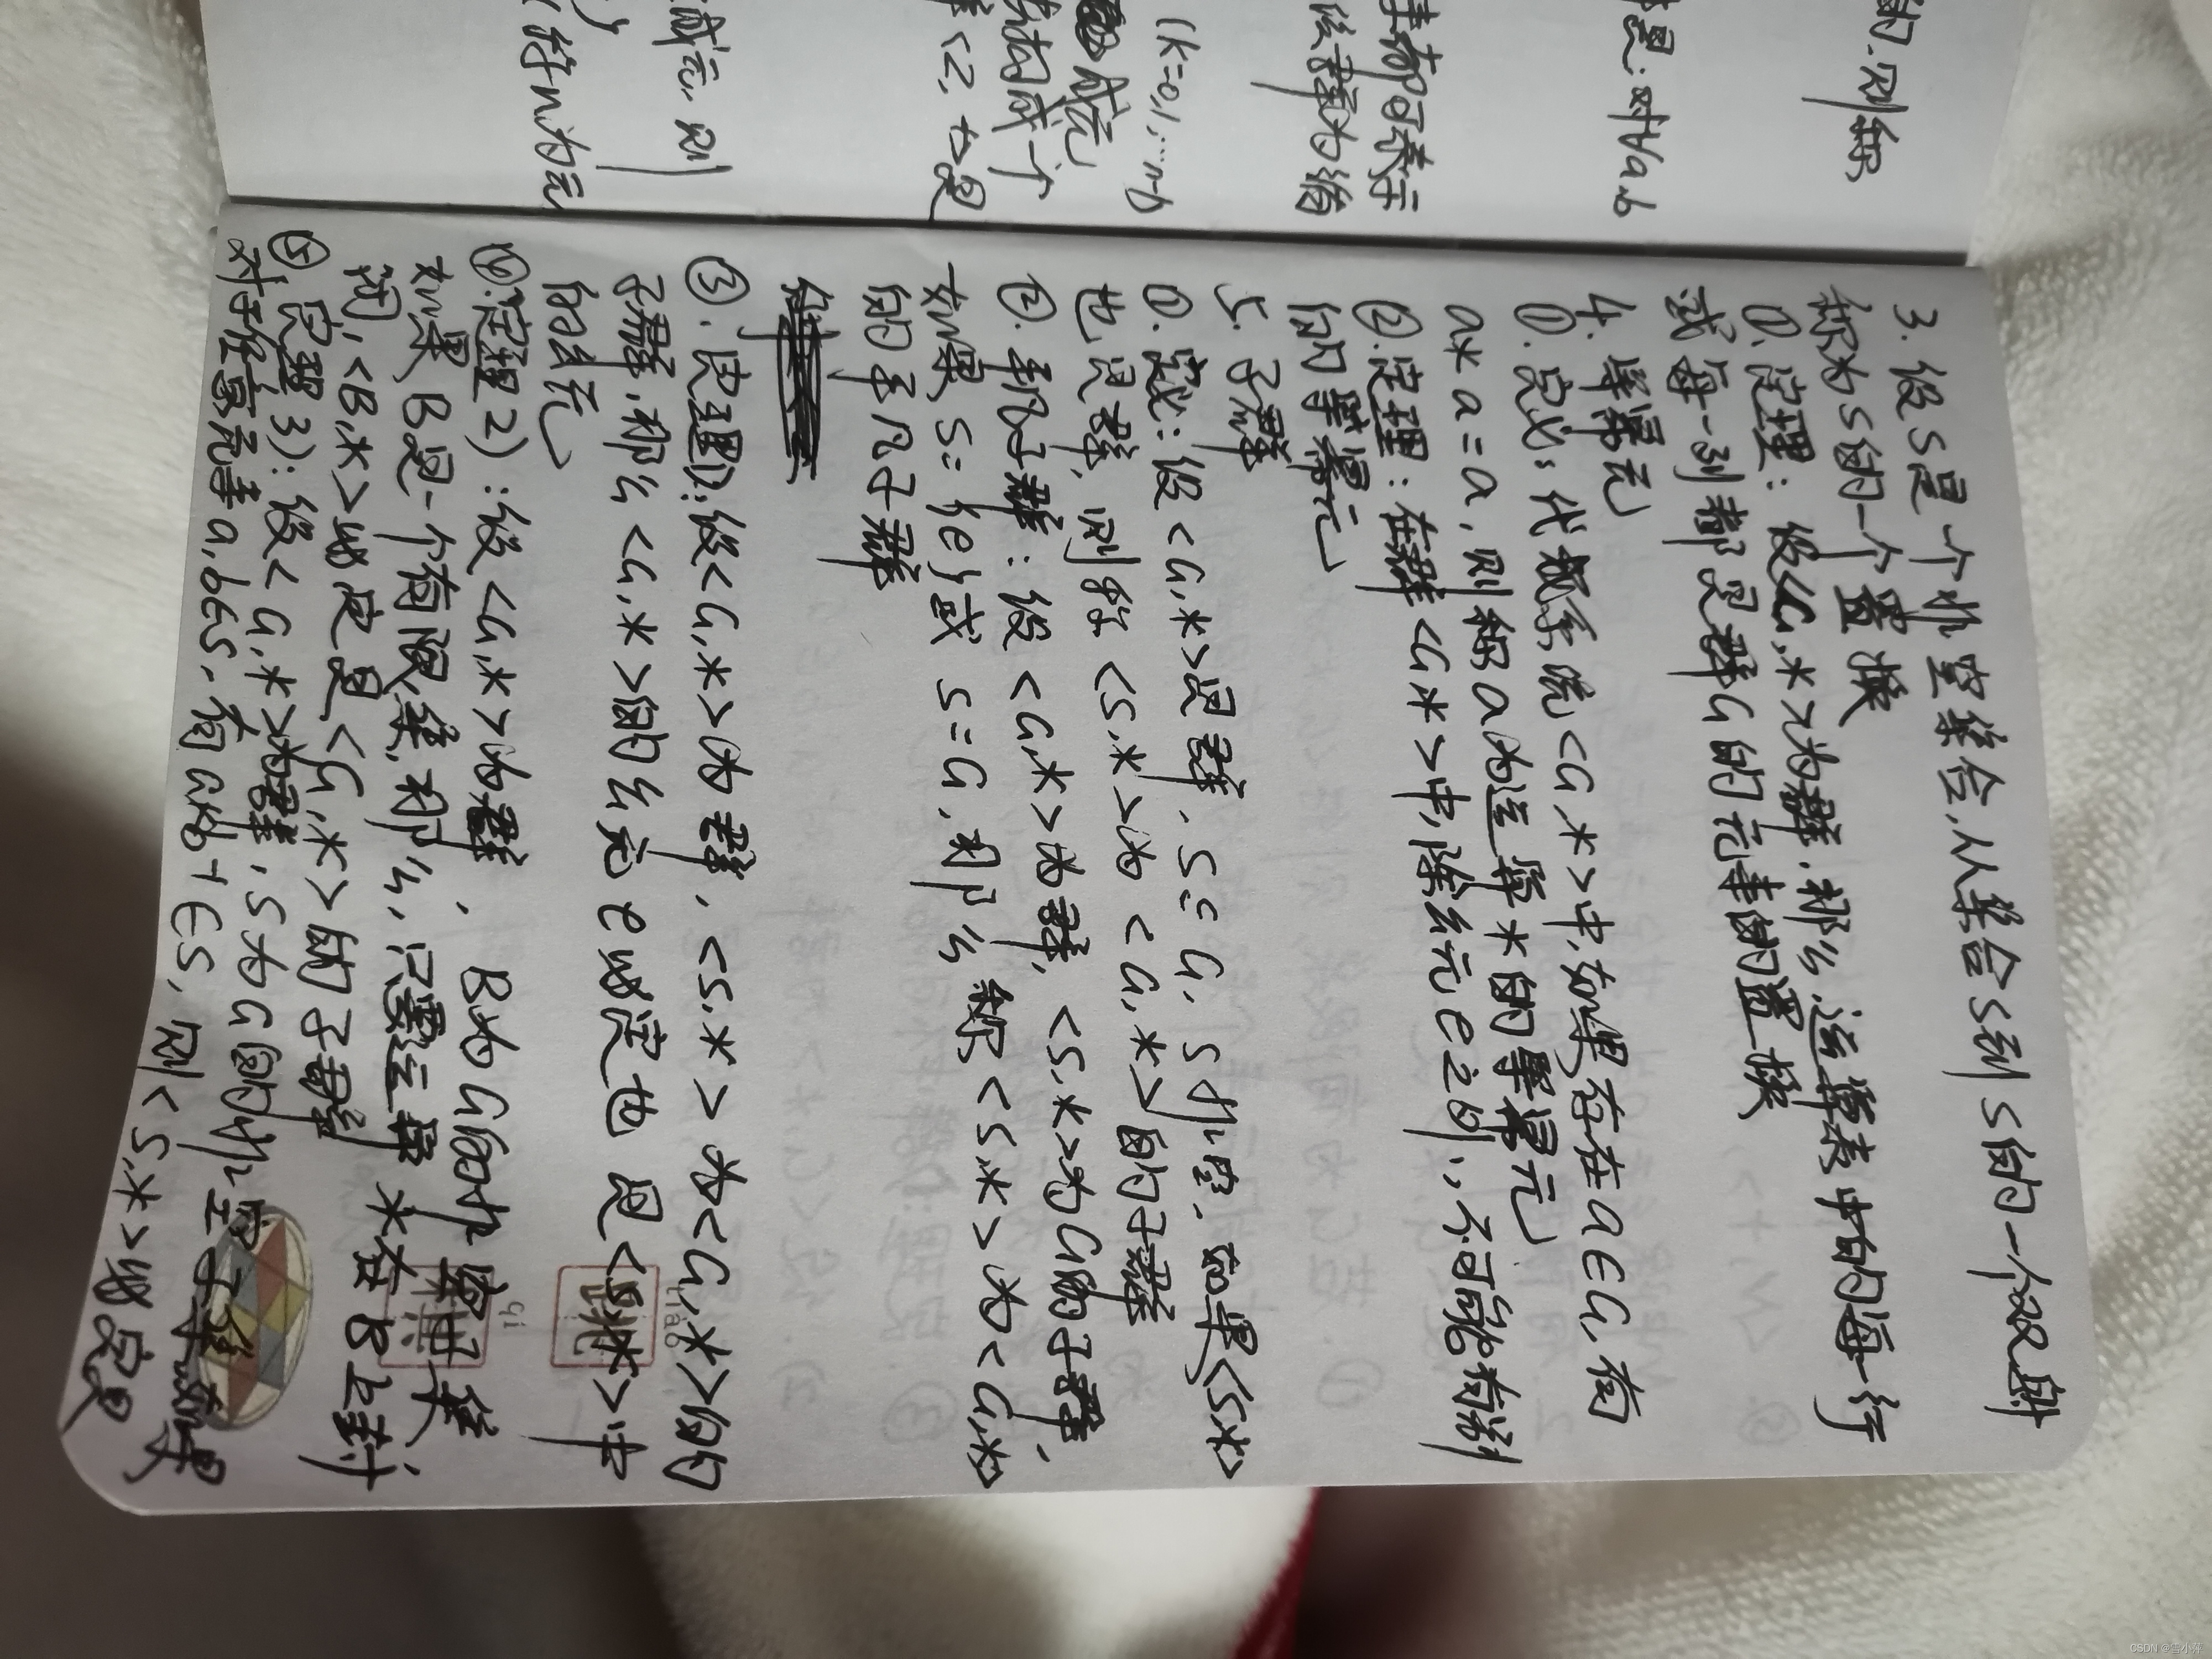 的.则称
是:对∀a,b
素都可表示
设群为循
(k=0,1,…,n-1)
成元
构成一个
<Z,+>是
成元,则
(符n为元
3.设S是一个非空集合,从集合S到S的一个双射
称为S的一个置换
①.定理:设<G,*>为群,那么,运算表中的每一行
或每一列都是群G的元素的置换
4.等幂元
①.定义:代数系统<G,*>中,如果存在a∈G,有
a*a=a,则称a为运算*的等幂元
②.定理:在群<G,*>中,除幺元e之外,不可能有别
的等幂元
5.子群
①.定义:设<G,*>是群,S⊆G,S非空,如果<S,*>
也是群,则称<S,*>为<G,*>的子群
②.平凡子群:设<G,*>为群,<S,*>为G的子群,
如果S={e}或S=G,那么称<S,*>为<G,*>
的平凡子群
③.定理1:设<G,*>为群,<S,*>为<G,*>的
子群,那么<G,*>的幺元e必定也是<S,*>中
的幺元
④.定理2):设<G,*>为群,B为G的非空子集
如果B是一个有限集,那么,只要运算*在B上封
闭,<B,*>必定是<G,*>的子群
⑤定理3):设<G,*>为群,S为G的非空子集,如果
对于任意元素a,b∈S,有a*b⁻¹∈S,则<S,*>必定是
qi
miao
CSDN @雪小萍